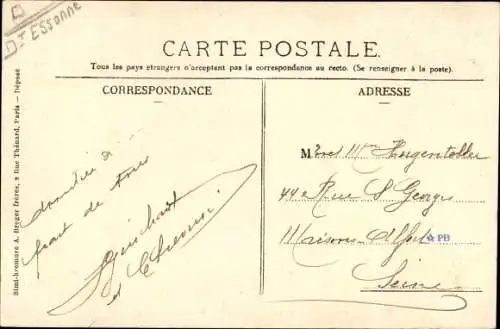 D
Dt ESSONNE
CARTE POSTALE
Tous les pays étrangers n'acceptent pas la correspondance au recto. (Se renseigner à la poste).
CORRESPONDANCE
ADRESSE
Simi-bromure A. Breger frères, 9 Rue Thénard, Paris — Déposé
part de tous
et
M
44 Rue St Georges
Maisons-Alfort
PB
Seine